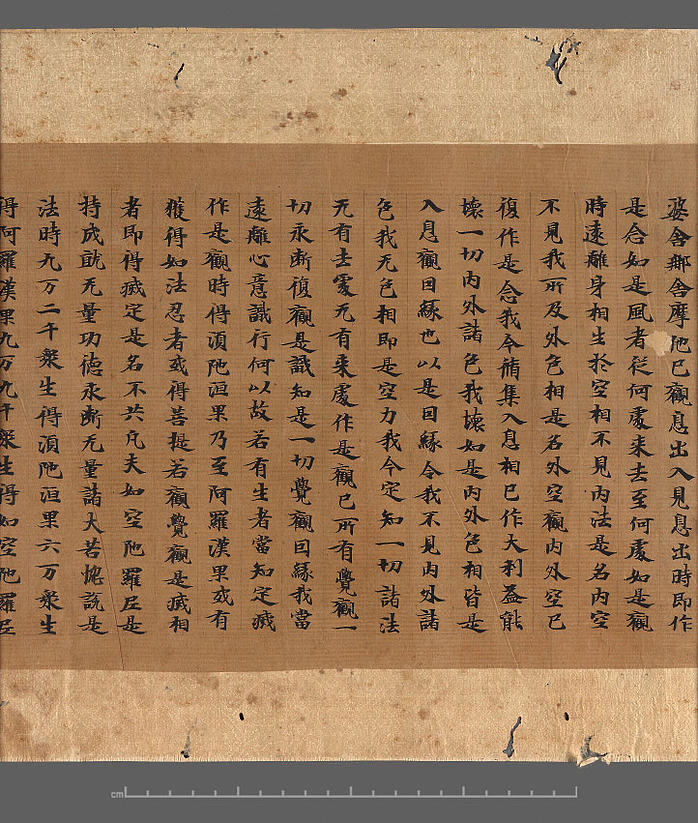 婆舍那舍摩陁已觀息出入見息出時即作
是念如是風者從何處来去至何處如是觀
時遠離身相生於空相不見內法是名內空
不見我所及外色相是名外空觀內外空已
復作是念我今脩集入息相已作大利益能
壞一切內外諸色我壞如是內外色相皆是
入息觀因緣也以是因緣令我不見內外諸
色我无色相即是空力我今定知一切諸法
无有去處无有来處作是觀已所有覺觀一
切永斷復觀是識知是一切覺觀因緣我當
遠離心意識行何以故若有生者當知定滅
作是觀時得湏陁洹果乃至阿羅漢果或有
獲得如法忍者或得菩提若觀覺觀是滅相
者即得滅定是名不共凡夫如空陁羅尼是
持成就无量功德永断无量諸大苦惱說是
法時九万二千衆生得湏陁洹果六万衆生
得阿羅漢果九万九千衆生得如空陁羅尼
cm